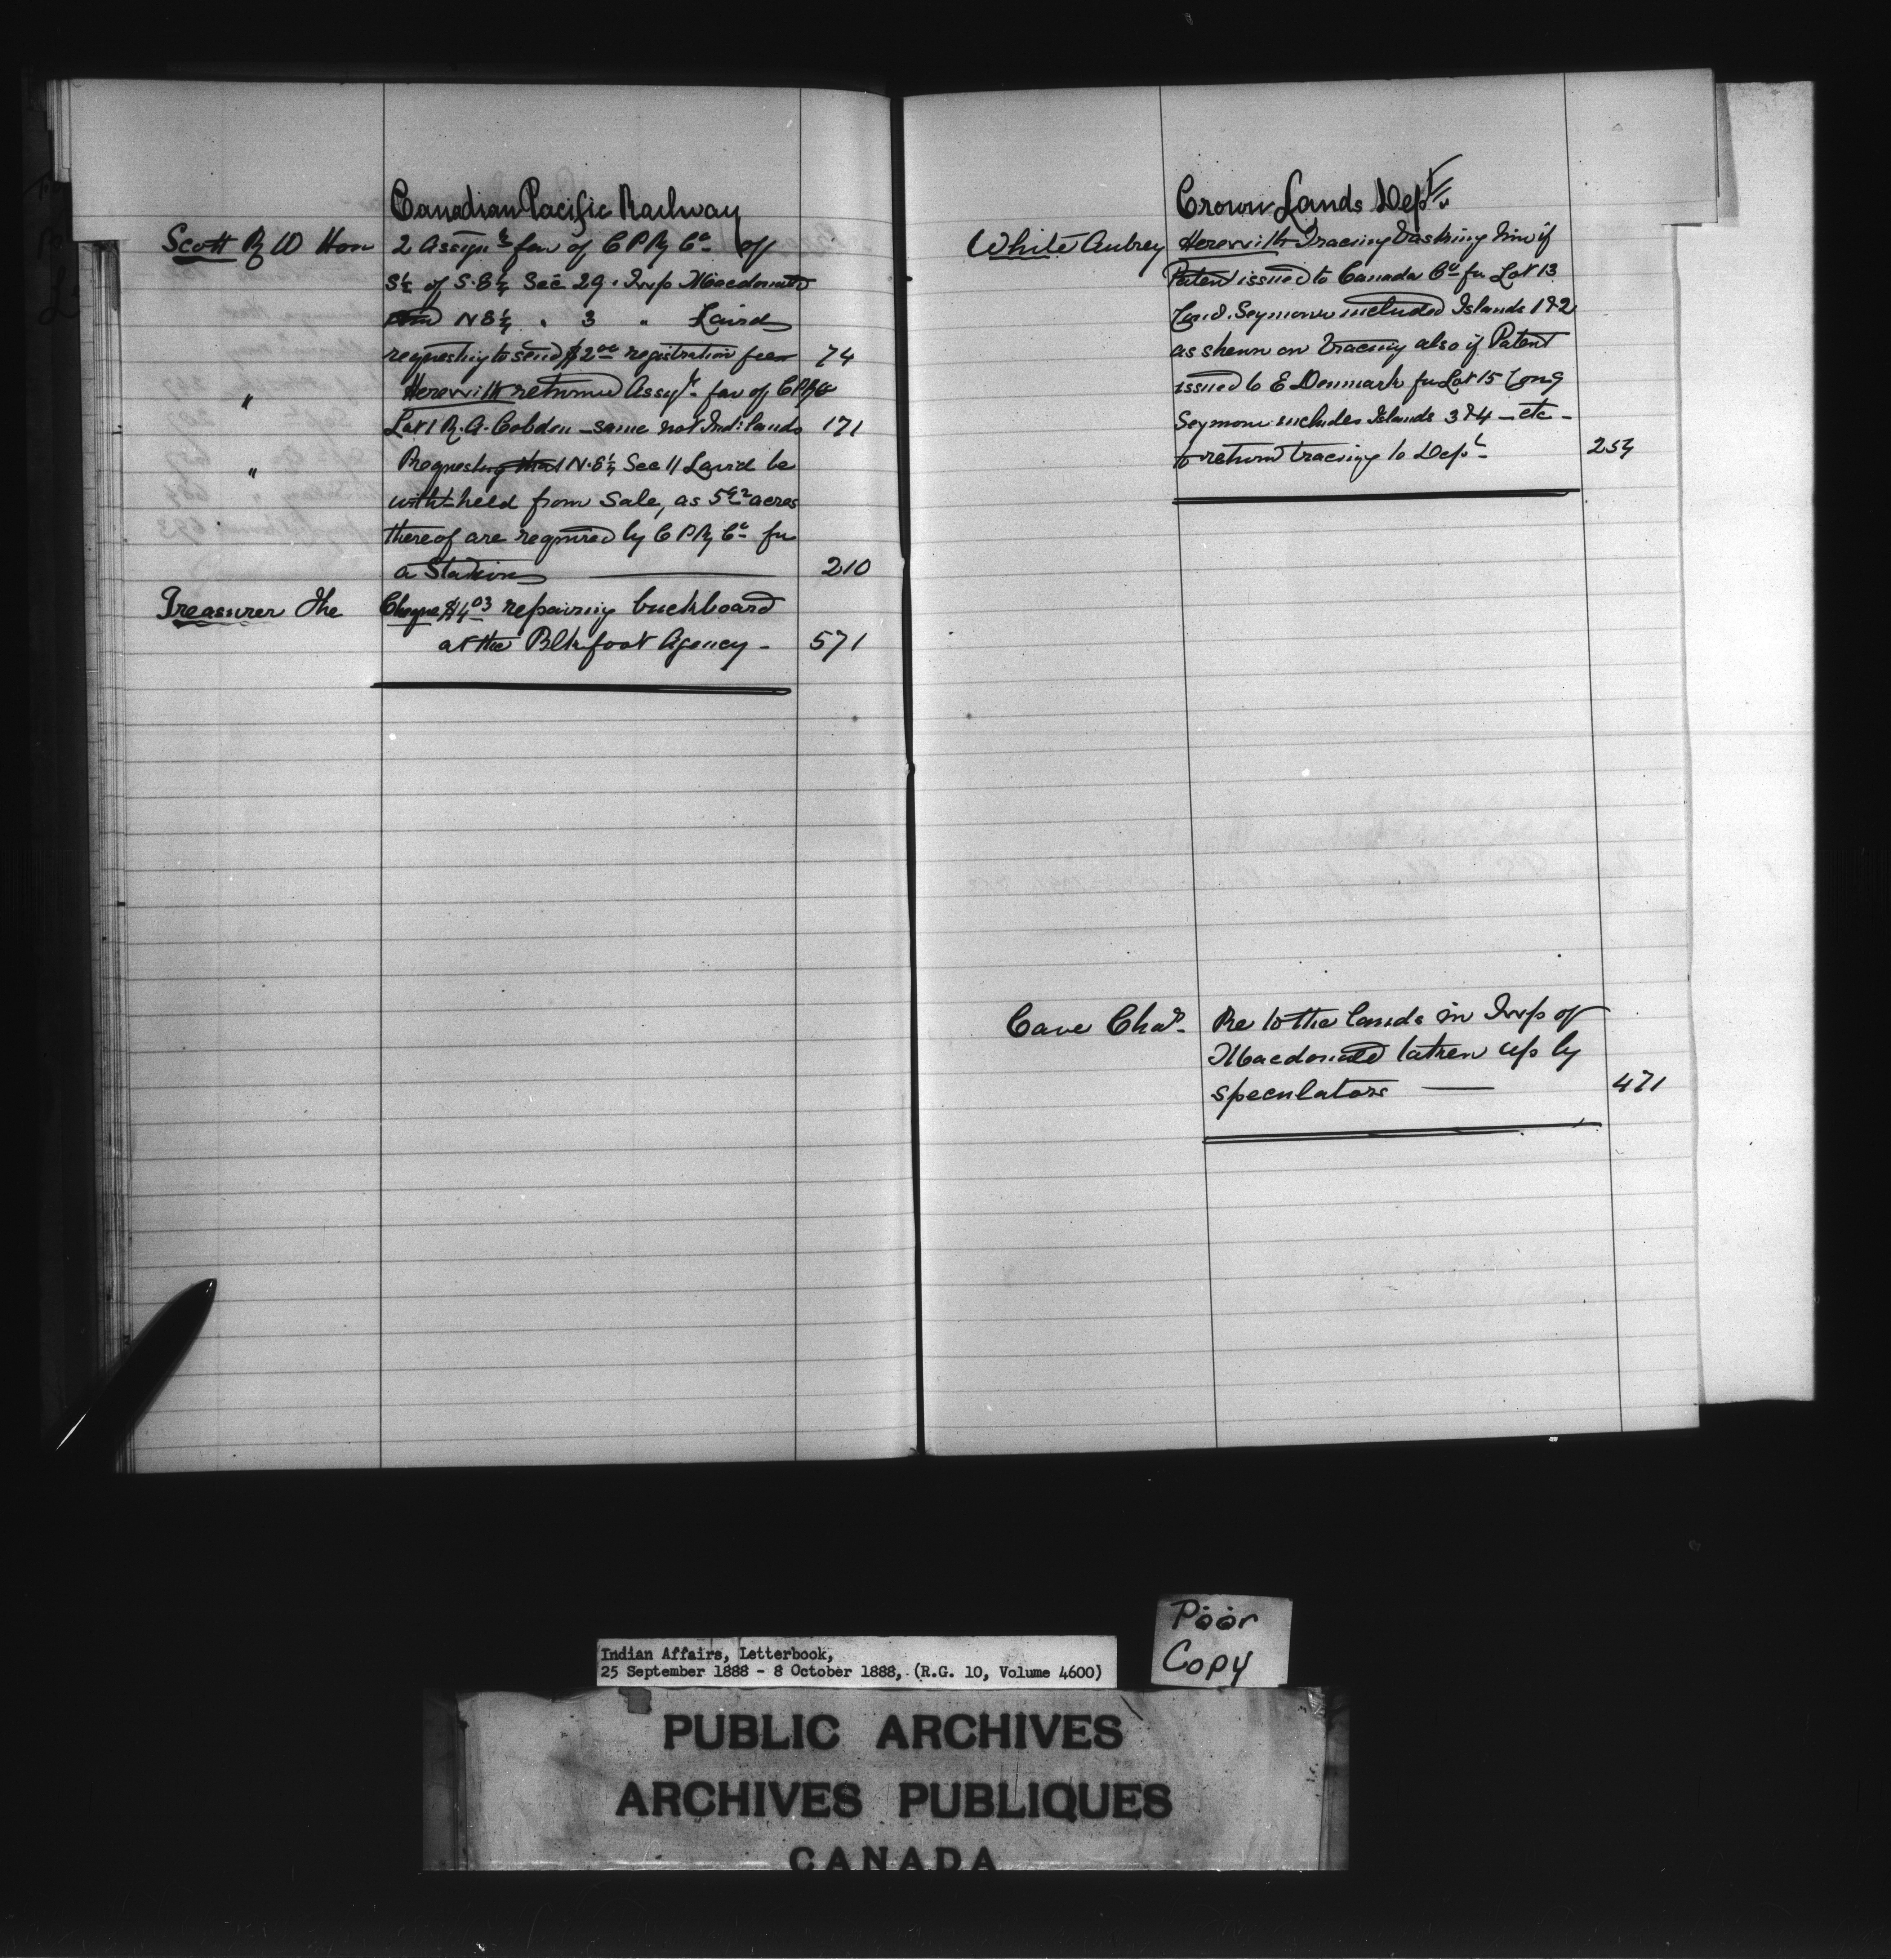 Canadian Pacific Railway
Scott R W Hon 2 Assignts fav of C P Ry Co of
S½ of S.E¼ Sec 29. Twp Macdonald
and N E¼ " 3 " Laird
requesting to send $2.00 registration fees 74
" Herewith returned Assigt. fav of C P Ry Co
Lot 1 R. A. Cobden - same not Ind: lands 171
" Requesting that N.E¼ Sec 11 Laird be
with-held from Sale, as acres
thereof are required by C P Ry Co for
a Station 210
Treasurer The Cheque $4.03 repairing buckboard
at the Blkfoot Agency - 571
Crown Lands Dept.
White Aubrey Herewith Tracing & asking him if
Patent issued to Canada Co for Lot 13
Con 8. Seymour included Islands 1 & 2
as shewn on tracing also if Patent
issued to E Denmark for Lot 15 Con 9
Seymour includes Islands 3 & 4 - etc -
to return tracing to Dept - 254
Cave Chas. Re to the lands in Twp of
Macdonald taken up by
speculators 471
Poor
Copy
Indian Affairs, Letterbook,
25 September 1888 - 8 October 1888, (R.G. 10, Volume 4600)
PUBLIC ARCHIVES
ARCHIVES PUBLIQUES
CANADA